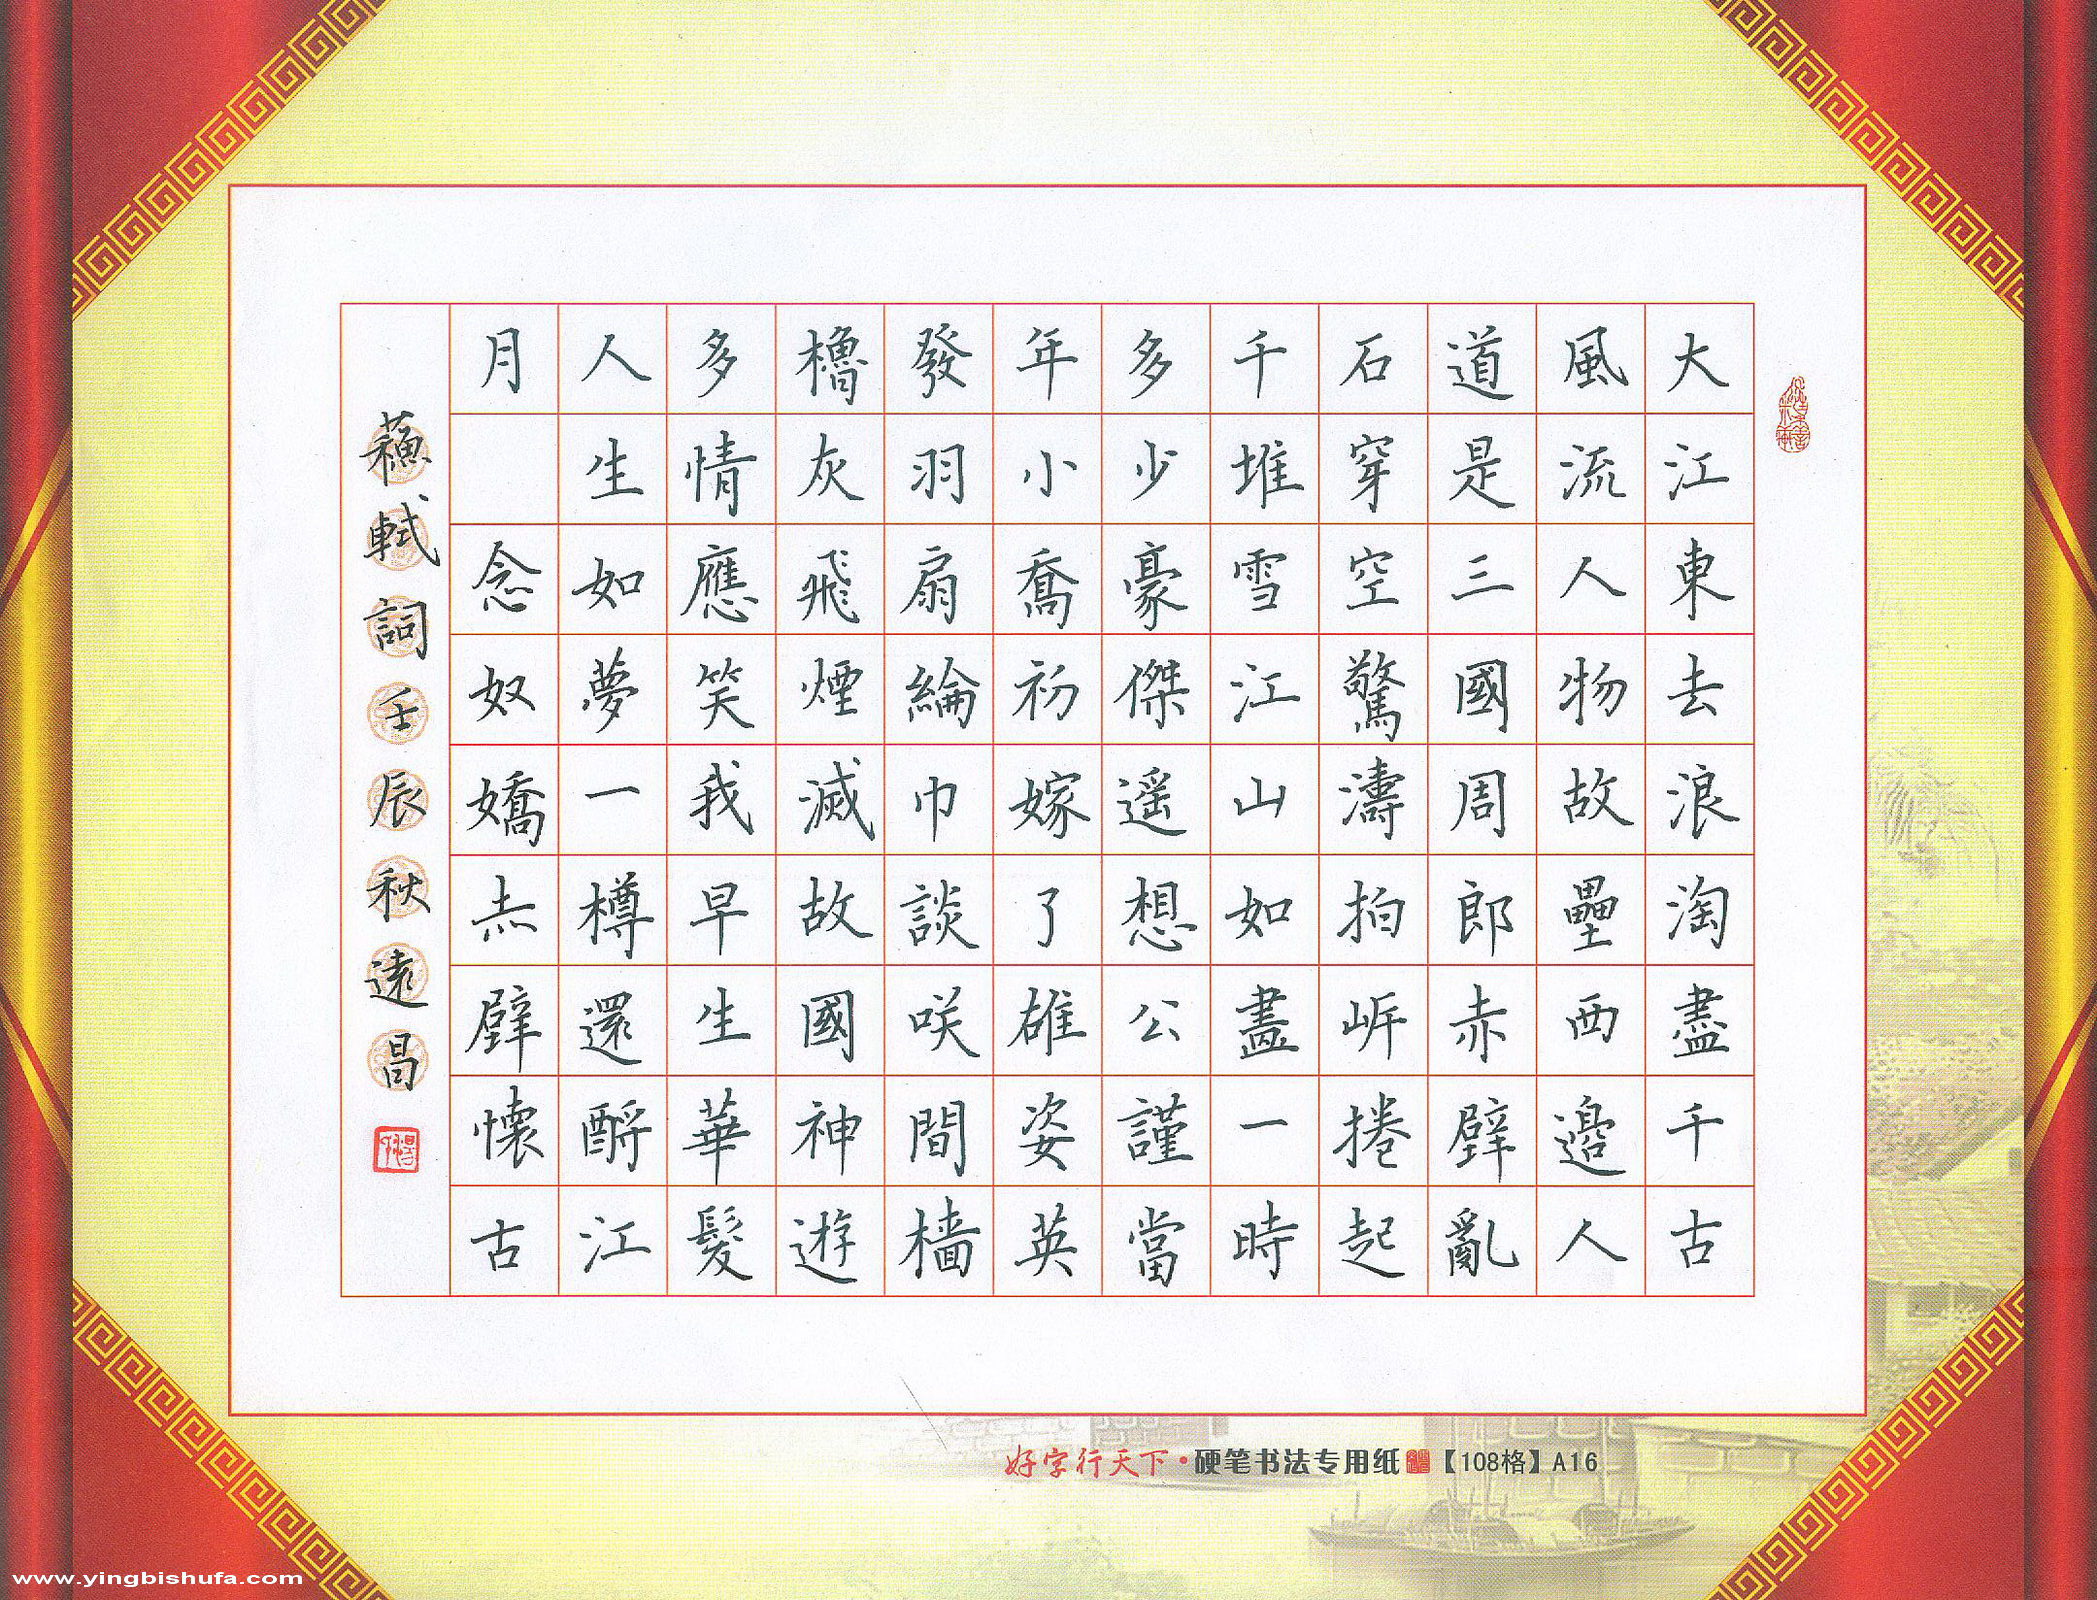 大江東去浪淘盡千古
風流人物故壘西邊人
道是三國周郎赤壁亂
石穿空驚濤拍岸捲起
千堆雪江山如畫一時
多少豪傑遥想公謹當
年小喬初嫁了雄姿英
發羽扇綸巾談咲間檣
櫓灰飛煙滅故國神遊
多情應笑我早生華髮
人生如夢一樽還酹江
月 念奴嬌赤壁懷古
蘇軾詞壬辰秋遠昌
好字行天下·硬笔书法专用纸【108格】A16
www.yingbishufa.com